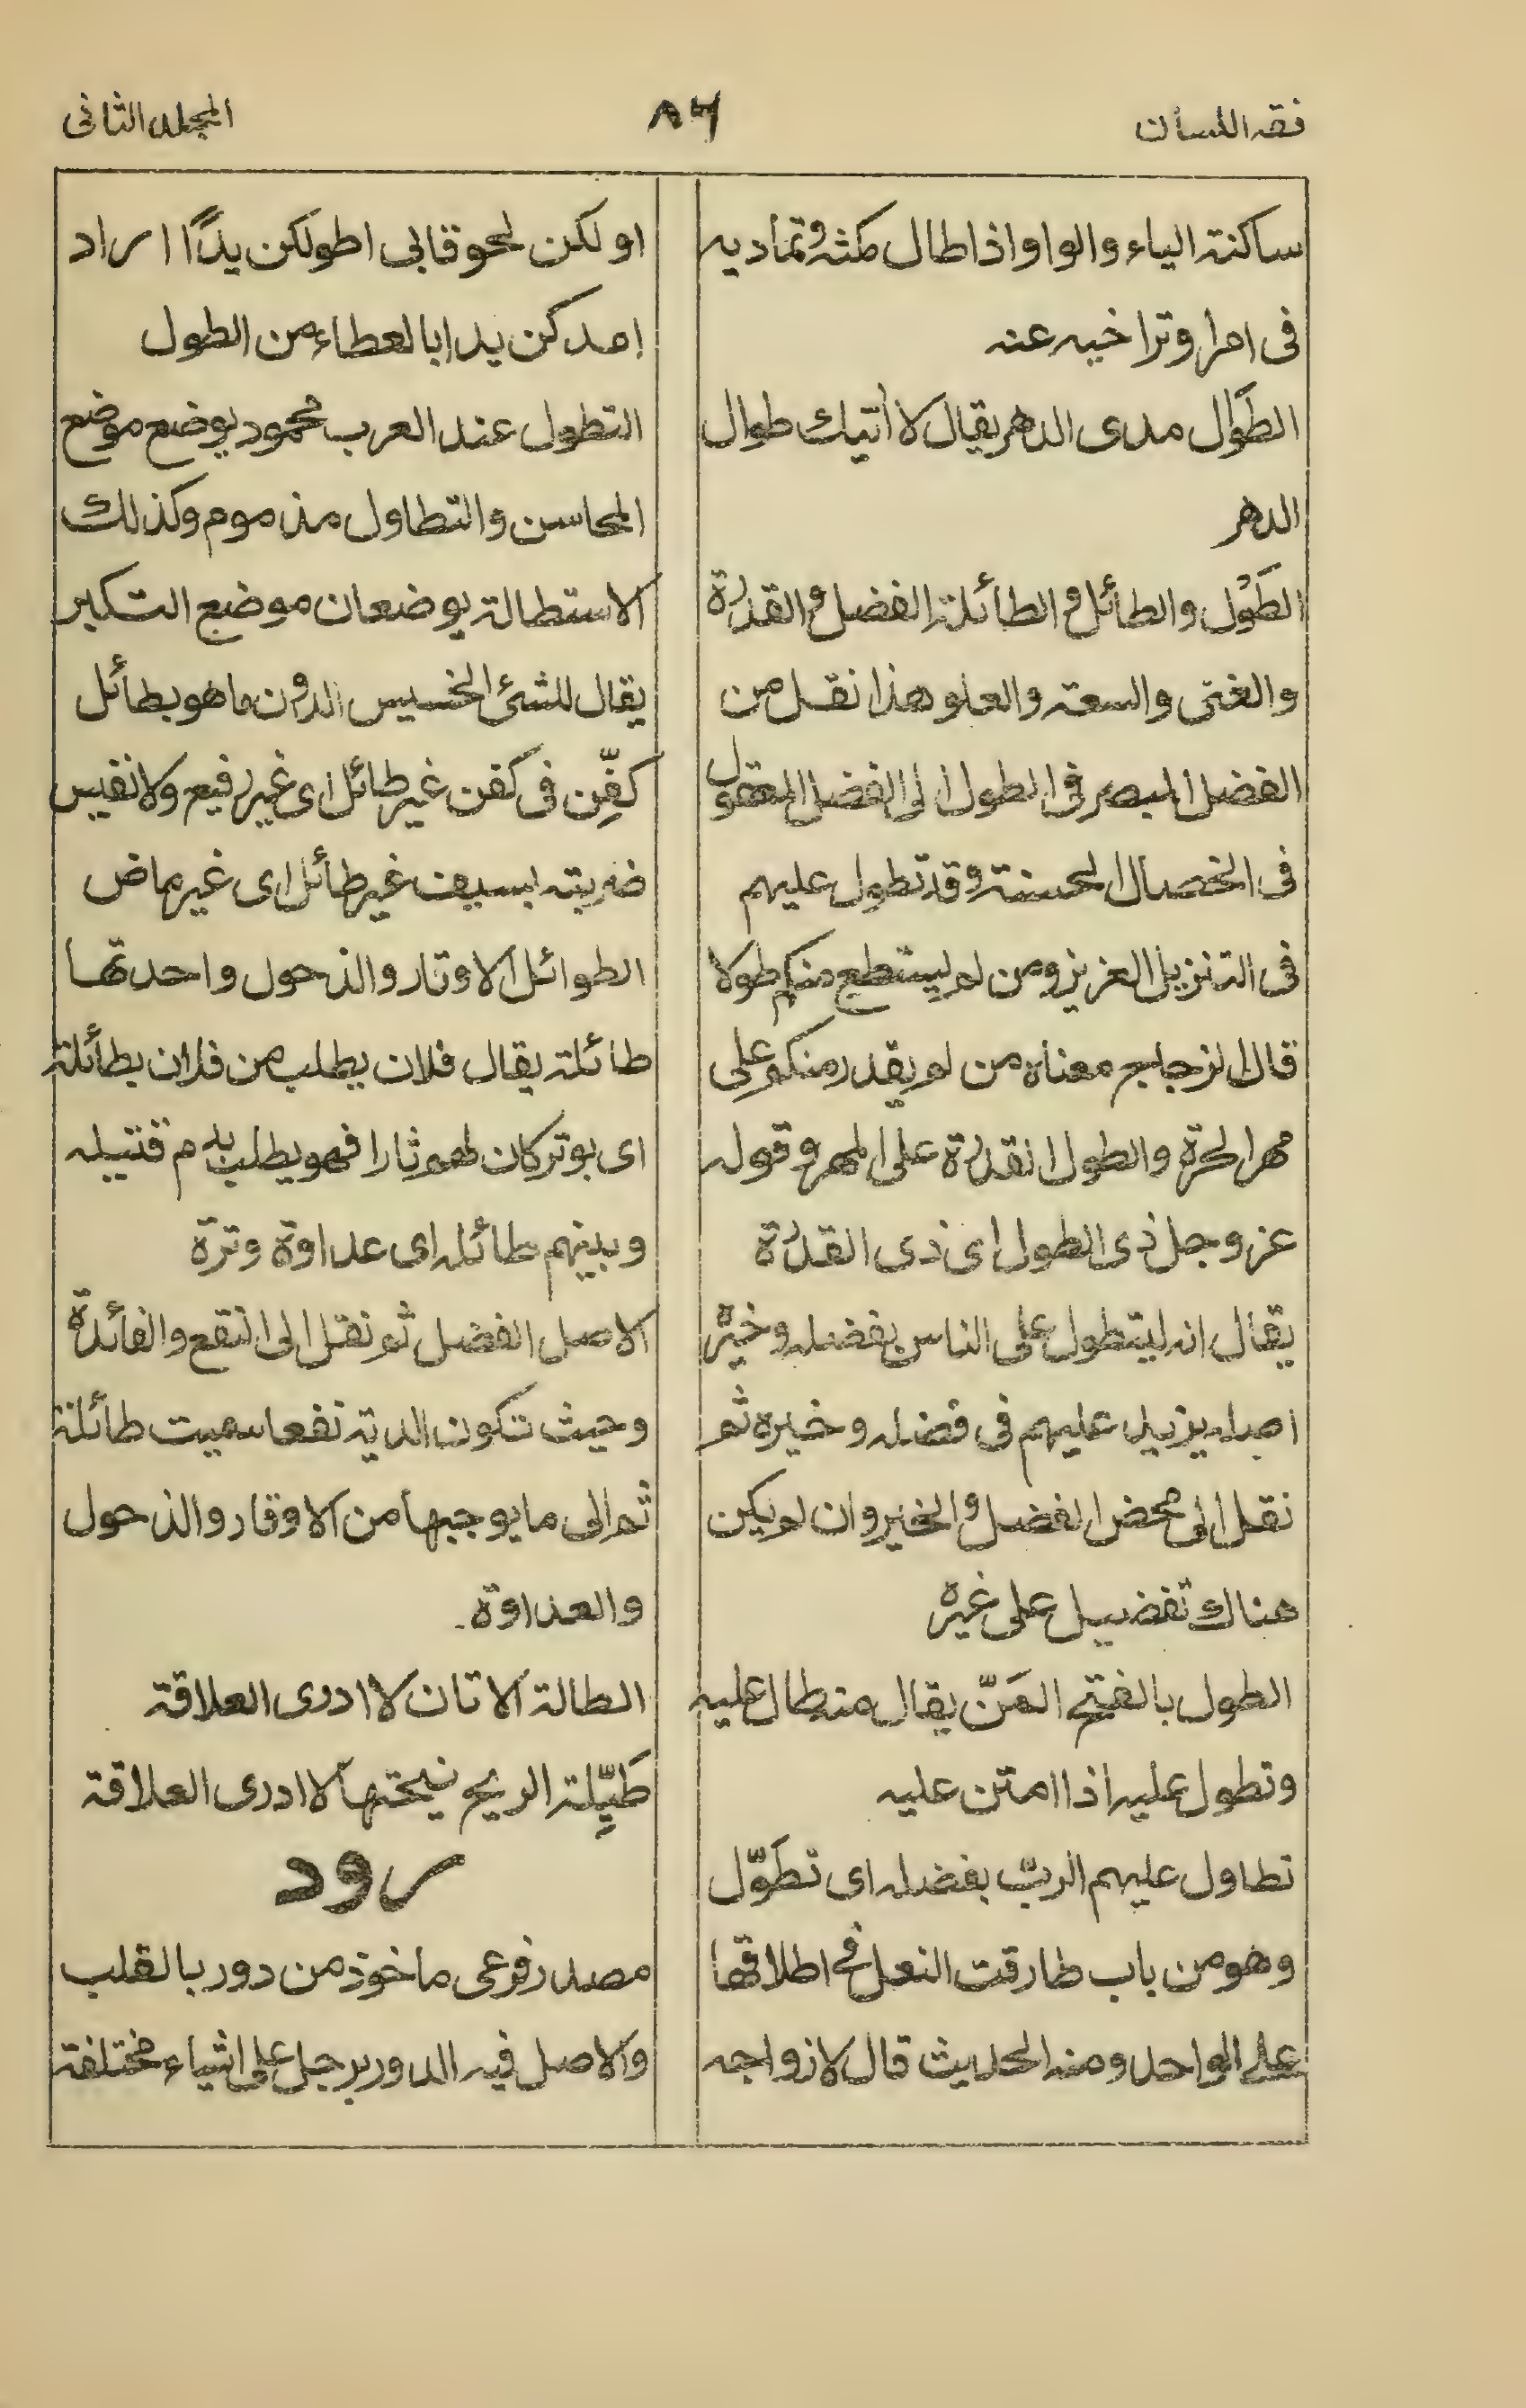 فقه اللسان
٨٦
المجلد الثانی
ساكنة الياء والواو اذا طال مكثه وتماديه
فی امر او تراخيه عنه
الطَوَال مدی الدهر يقال لا أتيك طوال
الدهر
الطَوْل والطائل و الطائلة الفضل والقدرة
والغنی والسعة والعلو هذا نقل من
الفضل المبصر فی الطول الی الفضل المعقول
فی الخصال الحسنة وقد تطول عليهم
فی التنزيل العزيز ومن لم يستطع منكم طولا
قال الزجاج معناه من لم يقدر منكم علی
مهر الحرة والطول القدرة علی المهر وقوله
عز وجل ذی الطول ای ذی القدرة
يقال انه ليتطول علی الناس بفضله وخيره
اصله يزيد عليهم فی فضله وخيره ثم
نقل الی محض الفضل والخير وان لم يكن
هناك تفضيل علی غيره
الطول بالفتح المَنّ يقال منه طال عليه
وتطول عليه اذا امتن عليه
تطاول عليهم الربّ بفضله ای تطَوّل
وهو من باب طارقت النعل فی اطلاقها
علی الواحد ومنه الحديث قال لازواجه
اولكن لحوقا بی اطولكن يدًا اراد
امدكن يدا بالعطاء من الطول
التطول عند العرب محمود يوضع موضع
المحاسن والتطاول مذموم وكذلك
الاستطالة يوضعان موضع التكبر
يقال للشئ الخسيس الدون ما هو بطائل
كفِّن فی كفن غير طائل ای غير رفيع ولا نفيس
ضربته بسيف غير طائل ای غير ماض
الطوائل الاوتار والذحول واحدتها
طائلة يقال فلان يطلب من فلان بطائلة
ای بوتر كان لهم ثارا فهو يطلب به دم قتيله
وبينهم طائله ای عداوة وترة
الاصل الفضل ثم نقل الی النفع والفائدة
وحيث تكون الدية نفعا سميت طائلة
ثم الی ما يوجبها من الاوقار والذحول
والعداوة
الطالة الاتان لا ادری العلاقة
طَيِّلة الريح نيحتها لا ادری العلاقة
رود
مصدر فرعی ماخوذ من دور بالقلب
والاصل فيه الدور برجل علی اشياء مختلفة